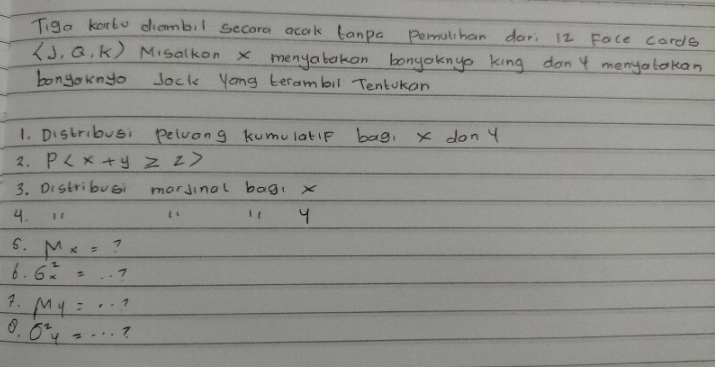 Tiga kartu diambil secara acak tanpa pemulihan dari 12 Face cards
(J, Q, K) Misalkan x menyatakan banyaknya king dan y menyatakan
banyaknya Jack yang terambil Tentukan
1. Distribusi peluang kumulatif bagi x dan y
2. P(x + y ≥ 2)
3. Distribusi marjinal bagi x
4. " " " y
5. Mx = ?
6. σ²x = ..?
7. My = ..?
8. σ²y = ...?